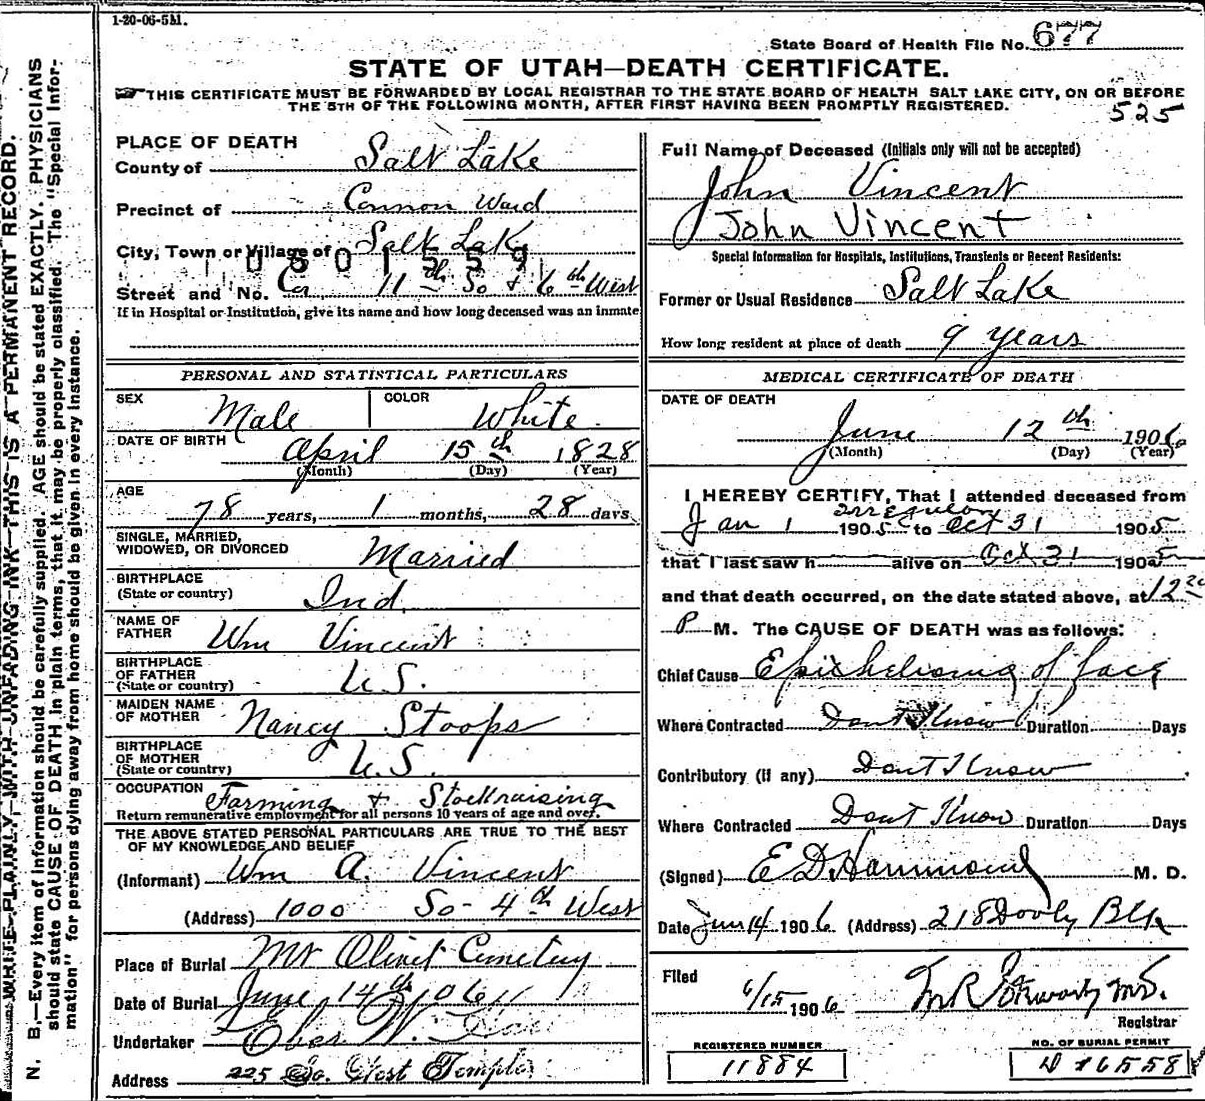 1-20-06-5M.
State Board of Health File No. 677
STATE OF UTAH—DEATH CERTIFICATE.
THIS CERTIFICATE MUST BE FORWARDED BY LOCAL REGISTRAR TO THE STATE BOARD OF HEALTH SALT LAKE CITY, ON OR BEFORE
THE 5TH OF THE FOLLOWING MONTH, AFTER FIRST HAVING BEEN PROMPTLY REGISTERED.
525
WRITE PLAINLY, WITH UNFADING INK—THIS IS A PERMANENT RECORD.
N. B.—Every item of information should be carefully supplied. AGE should be stated EXACTLY. PHYSICIANS
should state CAUSE OF DEATH in plain terms, that it may be properly classified. The "Special Infor-
mation" for persons dying away from home should be given in every instance.
PLACE OF DEATH
County of Salt Lake
Precinct of Cannon Ward
City, Town or Village of Salt Lake
0601559
Street and No. Cor 11th So & 6th West
If in Hospital or Institution, give its name and how long deceased was an inmate
PERSONAL AND STATISTICAL PARTICULARS
SEX Male COLOR White
DATE OF BIRTH April 15th 1828
(Month) (Day) (Year)
AGE
78 years, 1 months, 28 days
SINGLE, MARRIED,
WIDOWED, OR DIVORCED Married
BIRTHPLACE
(State or country) Ind.
NAME OF
FATHER Wm Vincent
BIRTHPLACE
OF FATHER
(State or country) U.S.
MAIDEN NAME
OF MOTHER Nancy Stoops
BIRTHPLACE
OF MOTHER
(State or country) U.S.
OCCUPATION Farming & Stockraising
Return remunerative employment for all persons 10 years of age and over.
THE ABOVE STATED PERSONAL PARTICULARS ARE TRUE TO THE BEST
OF MY KNOWLEDGE AND BELIEF
(Informant) Wm A. Vincent
(Address) 1000 So- 4th West
Place of Burial Mt Olivet Cemetery
Date of Burial June 14th 1906
Undertaker W.
Address 225 So. West Temple
Full Name of Deceased (Initials only will not be accepted)
John Vincent
John Vincent
Special Information for Hospitals, Institutions, Transients or Recent Residents:
Former or Usual Residence Salt Lake
How long resident at place of death 9 years
MEDICAL CERTIFICATE OF DEATH
DATE OF DEATH
June 12th 1906
(Month) (Day) (Year)
I HEREBY CERTIFY, That I attended deceased from
irregular
Jan 1 1905 to Oct 31 1905
that I last saw h alive on Oct 31 1905
and that death occurred, on the date stated above, at 12
P M. The CAUSE OF DEATH was as follows:
Chief Cause Epithelioma of face
Where Contracted Dont Know Duration Days
Contributory (if any) Dont Know
Where Contracted Dont Know Duration Days
(Signed) E D Hammond M. D.
Date June 14 1906 (Address) 218 Dooly Blk
Filed 6/15 1906
Registrar
REGISTERED NUMBER
11884
NO. OF BURIAL PERMIT
6558